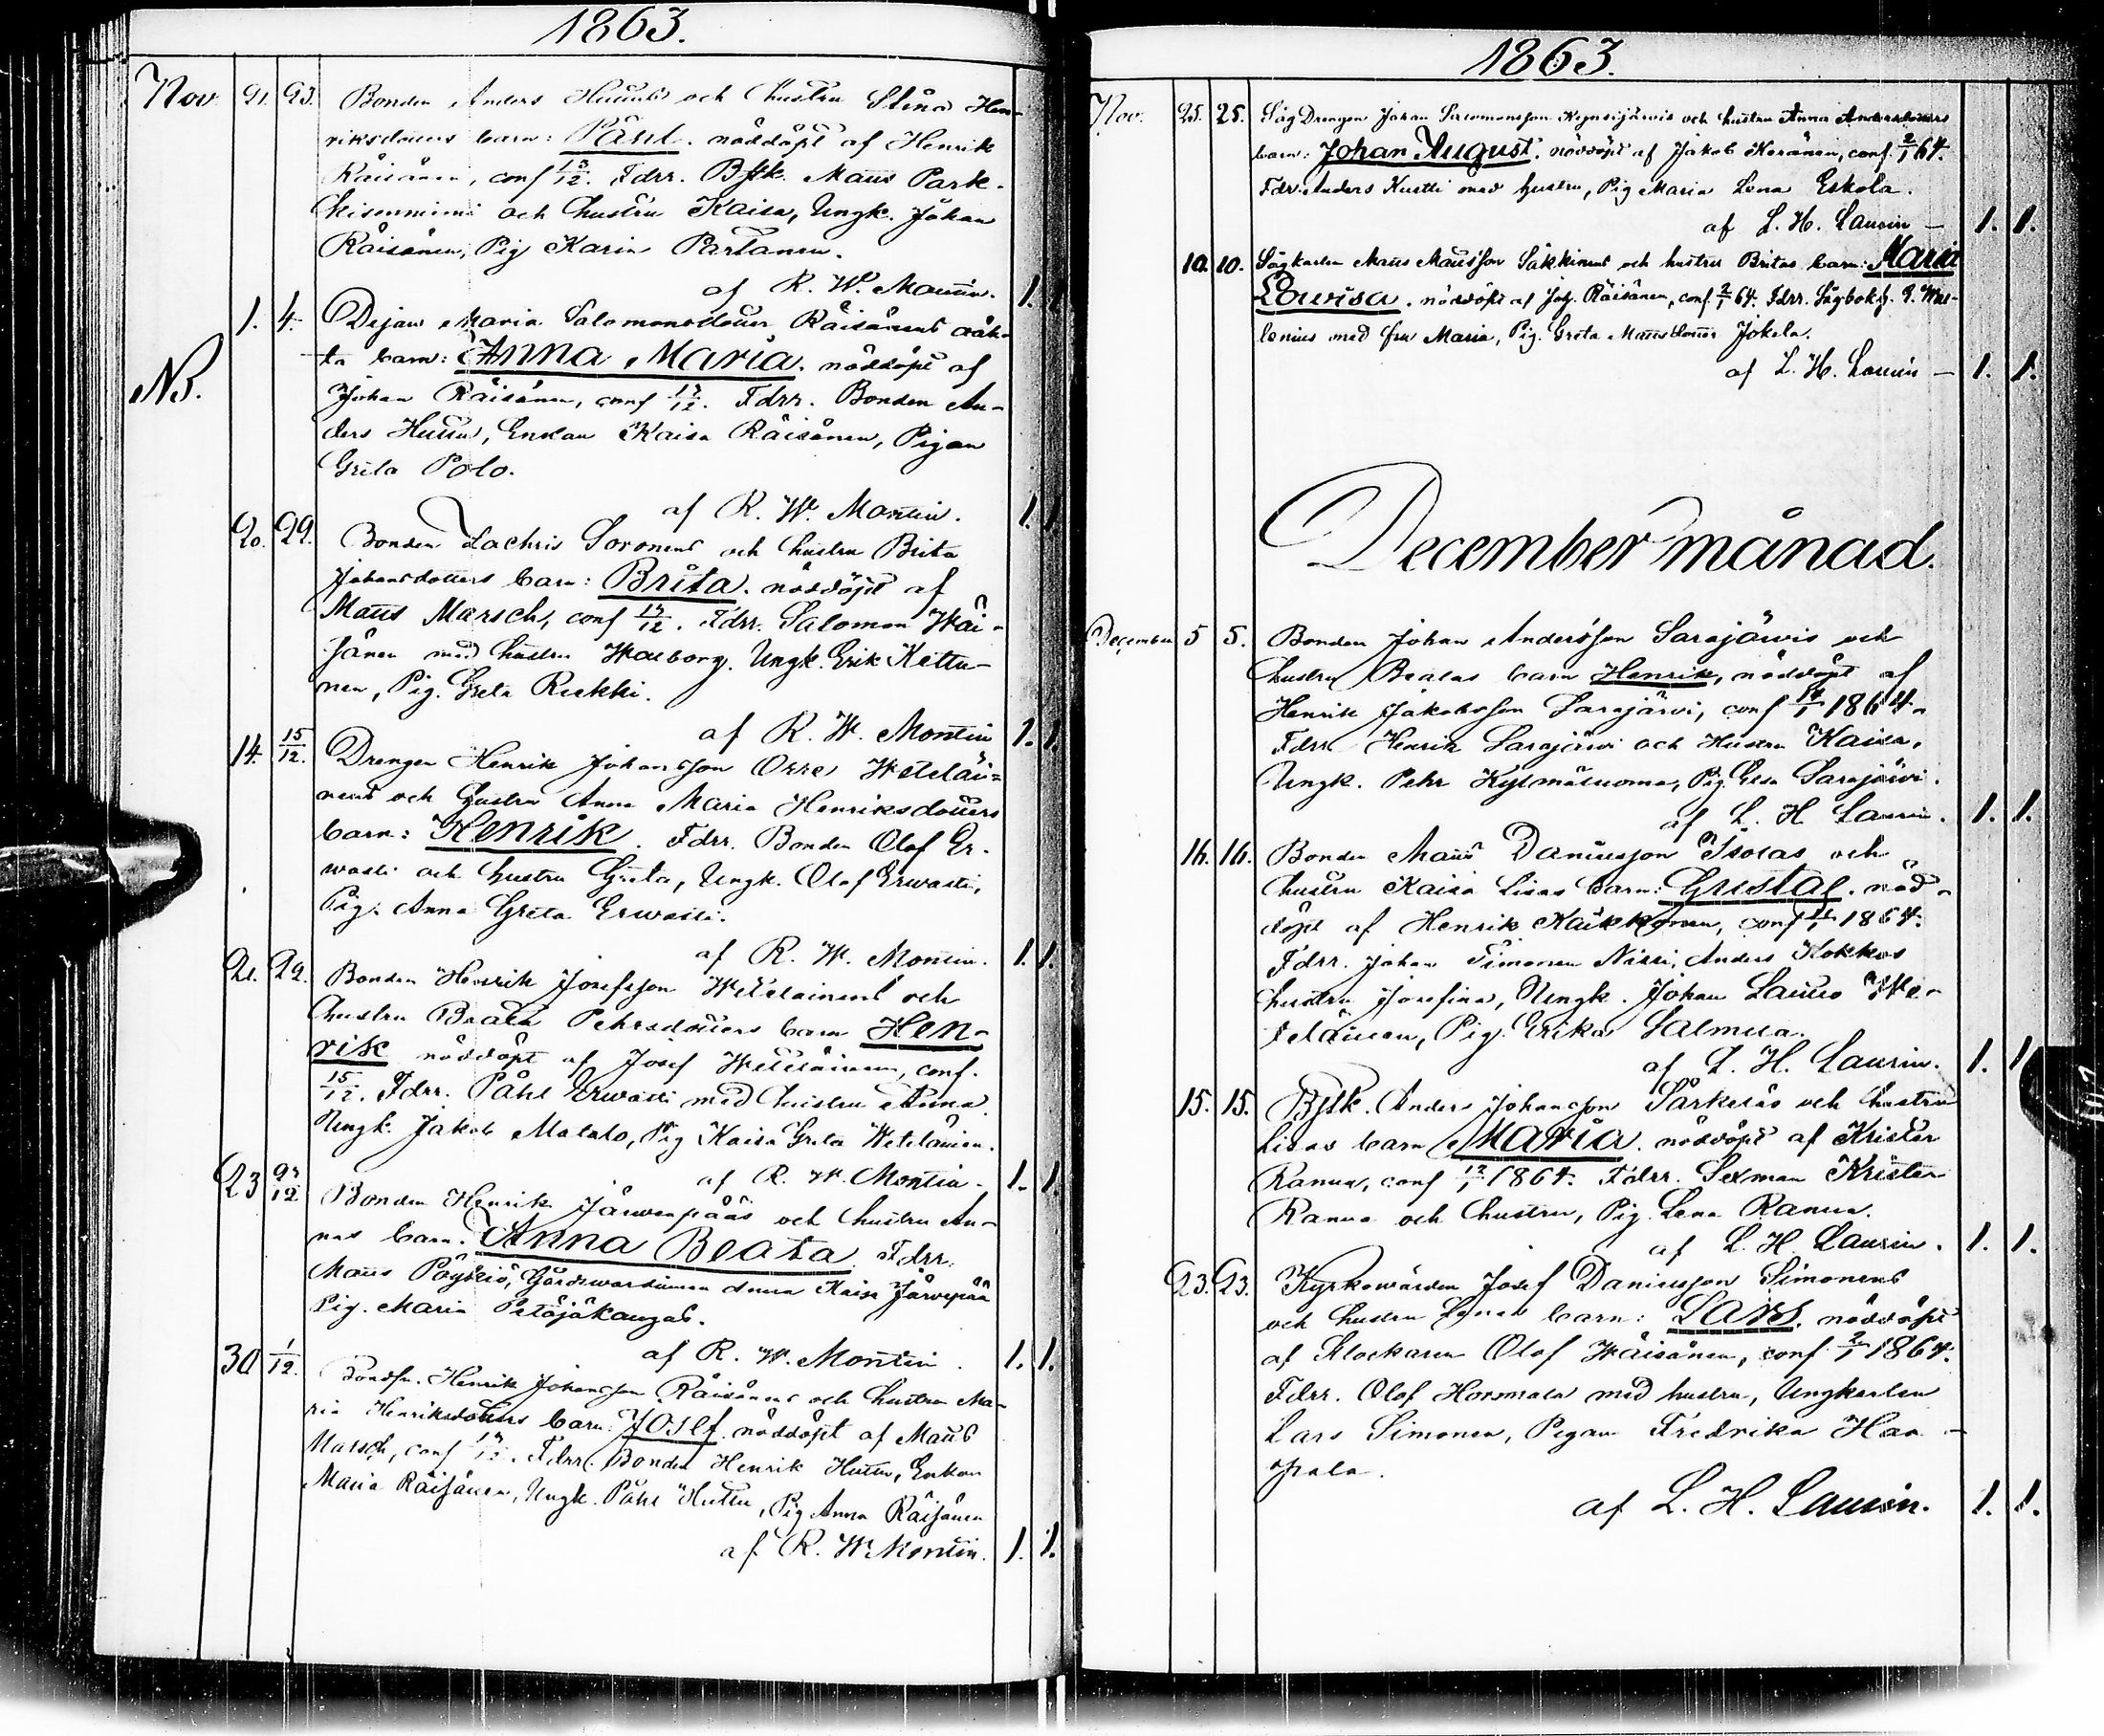 1863.
Nov. 21. 23. Bonden Anders Huttus och hustru Stina Hen-
riksdotters barn: Påhl. nöddöpt af Henrik
Räisänen, conf 13/12. Fdrr. Bftk. Matts Park-
kisenniemi och hustru Kaisa, Ungk. Johan
Räisänen, Pig Karin Partanen.
af R. W. Montin. 1. 1.
1. 4. Pigan Maria Salomonsdotter Räisänens oäk-
ta barn: Anna Maria. nöddöpt af
NB. Johan Räisänen, conf 13/12. Fdrr. Bonden An-
ders Huttu, Enkan Kaisa Räisänen, Pigan
Greta Polo.
af R. W. Montin. 1. 1.
20. 29. Bonden Zachris Soronens och hustru Brita
Johansdotters barn: Brita. nöddöpt af
Matts Marsch, conf 13/12. Fdrr. Salomon Wäi-
sänen med hustru Walborg. Ungk. Erik Kettu-
nen, Pig. Greta Rukki.
af R. W. Montin 1. 1.
14. 15/12. Drengen Henrik Johansson Orre Weteläi-
nens och hustru Anna Maria Henriksdotters
barn: Henrik. Fdrr. Bonden Olof Er-
wasti och hustru Greta, Ungk. Olof Erwasti,
Pig. Anna Greta Erwasti.
af R. W. Montin. 1. 1.
21. 22. Bonden Henrik Josefsson Weteläinens och
hustru Beata Pehrsdotters barn Hen-
rik nöddöpt af Josef Weteläinen, conf.
15/12. Fdrr. Påhl Erwasti med hustru Anna.
Ungk. Jakob Matalo, Pig Kaisa Greta Weteläinen.
af R. W. Montin. 1. 1.
23 27/12 Bonden Henrik Järwenpääs och hustru An-
nas barn. Anna Beata. Fdrr.
Matts Pöykiö, Gårdswärdinnan Anna Kaisa Järvenpää
Pig. Maria Petäjäkangas.
af R. W. Montin. 1. 1.
30 1/12. Bondsn. Henrik Johansson Räisänens och hustru Ma-
ria Henriksdotters barn: Josef. nöddöpt af Matts
Marsch, conf 13/12. Fdrr. Bonden Henrik Huttu, Enkan
Maria Räisänen, Ungk. Påhl Huttu, Pig Anna Räisänen
af R. W. Montin. 1. 1.
1863.
Nov. 25. 25. Såg Drengen Johan Salomonsson Kynsijärvis och hustru Anna Andersdotters
barn: Johan August. nöddöpt af Jakob Keränen, conf. 2/1 64.
Fdrr. Anders Kustti med hustru, Pig Maria Lena Eskola.
af L. H. Laurin – 1. 1.
10. 10. Sågkarlen Matts Mattsson Säkkinens och hustru Britas barn: Maria
Lowisa. nöddöpt af Joh. Räisänen, conf. 2/1 64. Fdrr. Sågbokh. G. Was-
lenius med fru Maria, Pig. Greta Mattsdotter Jokela.
af L. H. Laurin – 1. 1.
December månad.
December 5 5. Bonden Johan Andersson Sarajärvis och
hustru Beatas barn Henrik, nöddöpt af
Henrik Jakobsson Sarajärvi, conf 14/1 1864.
Fdrr Henrik Sarajärvi och Hustru Kaisa,
Ungk. Pehr Kylmäluoma, Pig. Elsa Sarajärvi.
af L. H. Laurin. 1. 1.
16. 16. Bonden Matts Danielsson Isolas och
hustru Kaisa Lisas barn: Gustaf. nöd-
döpt af Henrik Kaukkonen, conf 11/1 1864.
Fdrr. Johan Simonen Nissi, Anders Kokkos
hustru Josefina, Ungk. Johan Launo We-
teläinen, Pig. Erika Salmela.
af L. H. Laurin. 1. 1
15. 15. Bftk. Anders Johansson Särkeläs och hustru
Lisas barn Maria. nöddöpt af Krister
Ranua, conf 12/1 1864. Fdrr. Sexman Krister
Ranua och hustru, Pig. Lena Ranua.
af L. H. Laurin. 1. 1.
23. 23. Kyrkowärden Josef Danielsson Simonens
och hustru barn: Lars. nöddöpt
af Klockaren Olof Wäisänen, conf 2/1 1864.
Fdrr. Olof Hormala med hustru, Ungkarlen
Lars Simonen, Pigan Fredrika Haa-
pala.
af L. H. Laurin. 1. 1.